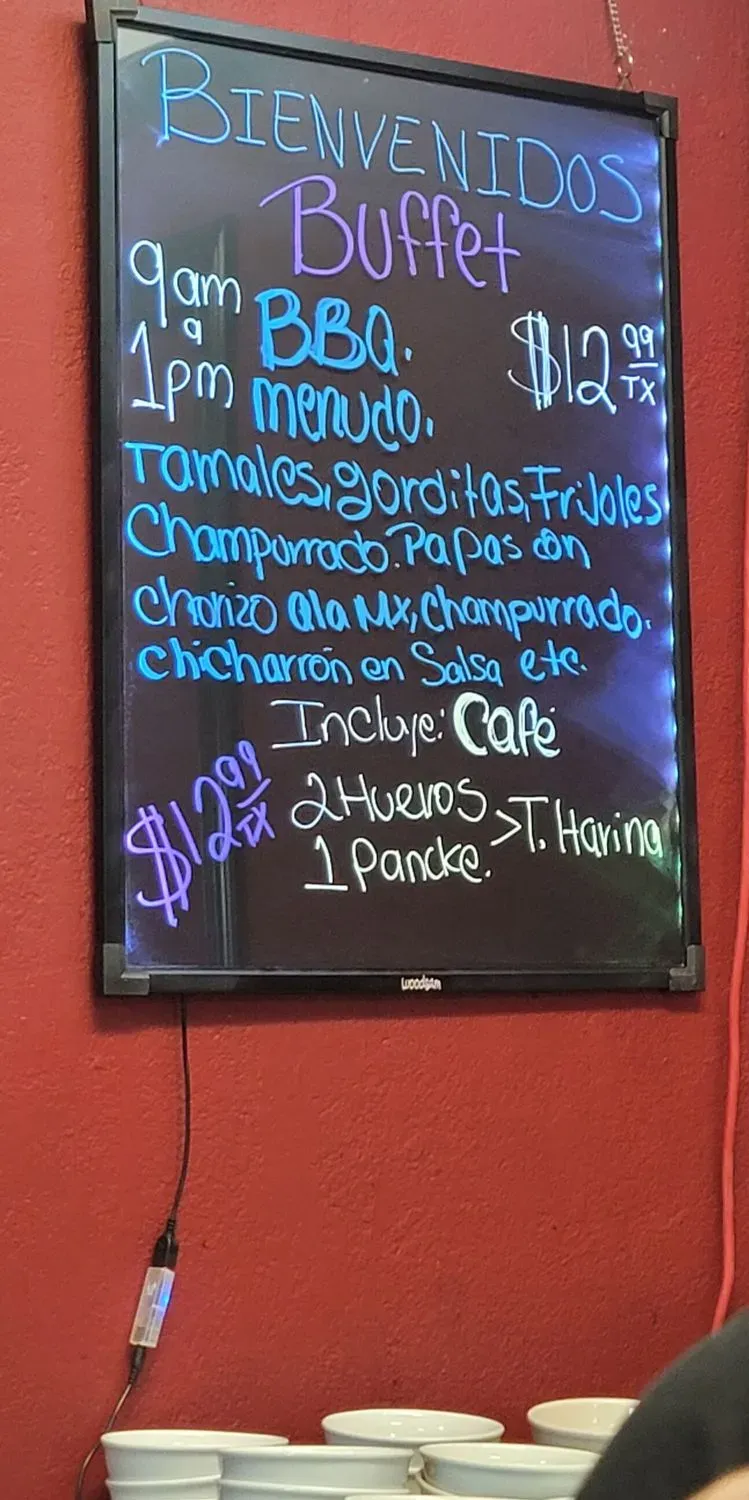 BIENVENIDOS
Buffet
9am
a
1pm
BBQ.
menudo.
$12 99
TX
Tamales, gorditas, Frijoles
Champurrado. Papas con
chorizo ala Mx, Champurrado.
chicharrón en Salsa etc.
Incluye: Café
$12 99
TX
2 Huevos
1 Pancke.
>T. Harina
woodsam